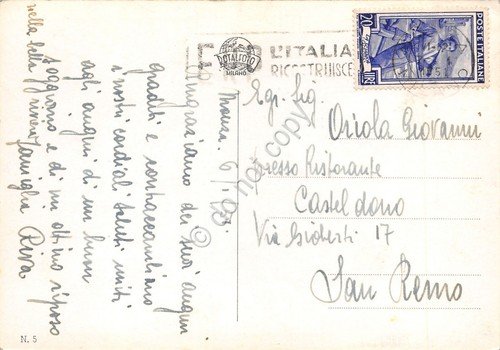 Monza.
Ringraziamo dei suoi auguri
graditi e contraccambiamo
i nostri cordiali saluti uniti
agli auguri di un buon
soggiorno e di un ottimo riposo
nella bella riviera
Famiglia Riva
TOTALTOTO
MILANO
L'ITALIA
RICOSTRUISCE
POSTE ITALIANE
20
LIRE
Egr. Sig.
Oriola Giovanni
presso Ristorante
Casteldono
Via Gioberti 17
San Remo
N. 5
do not copy